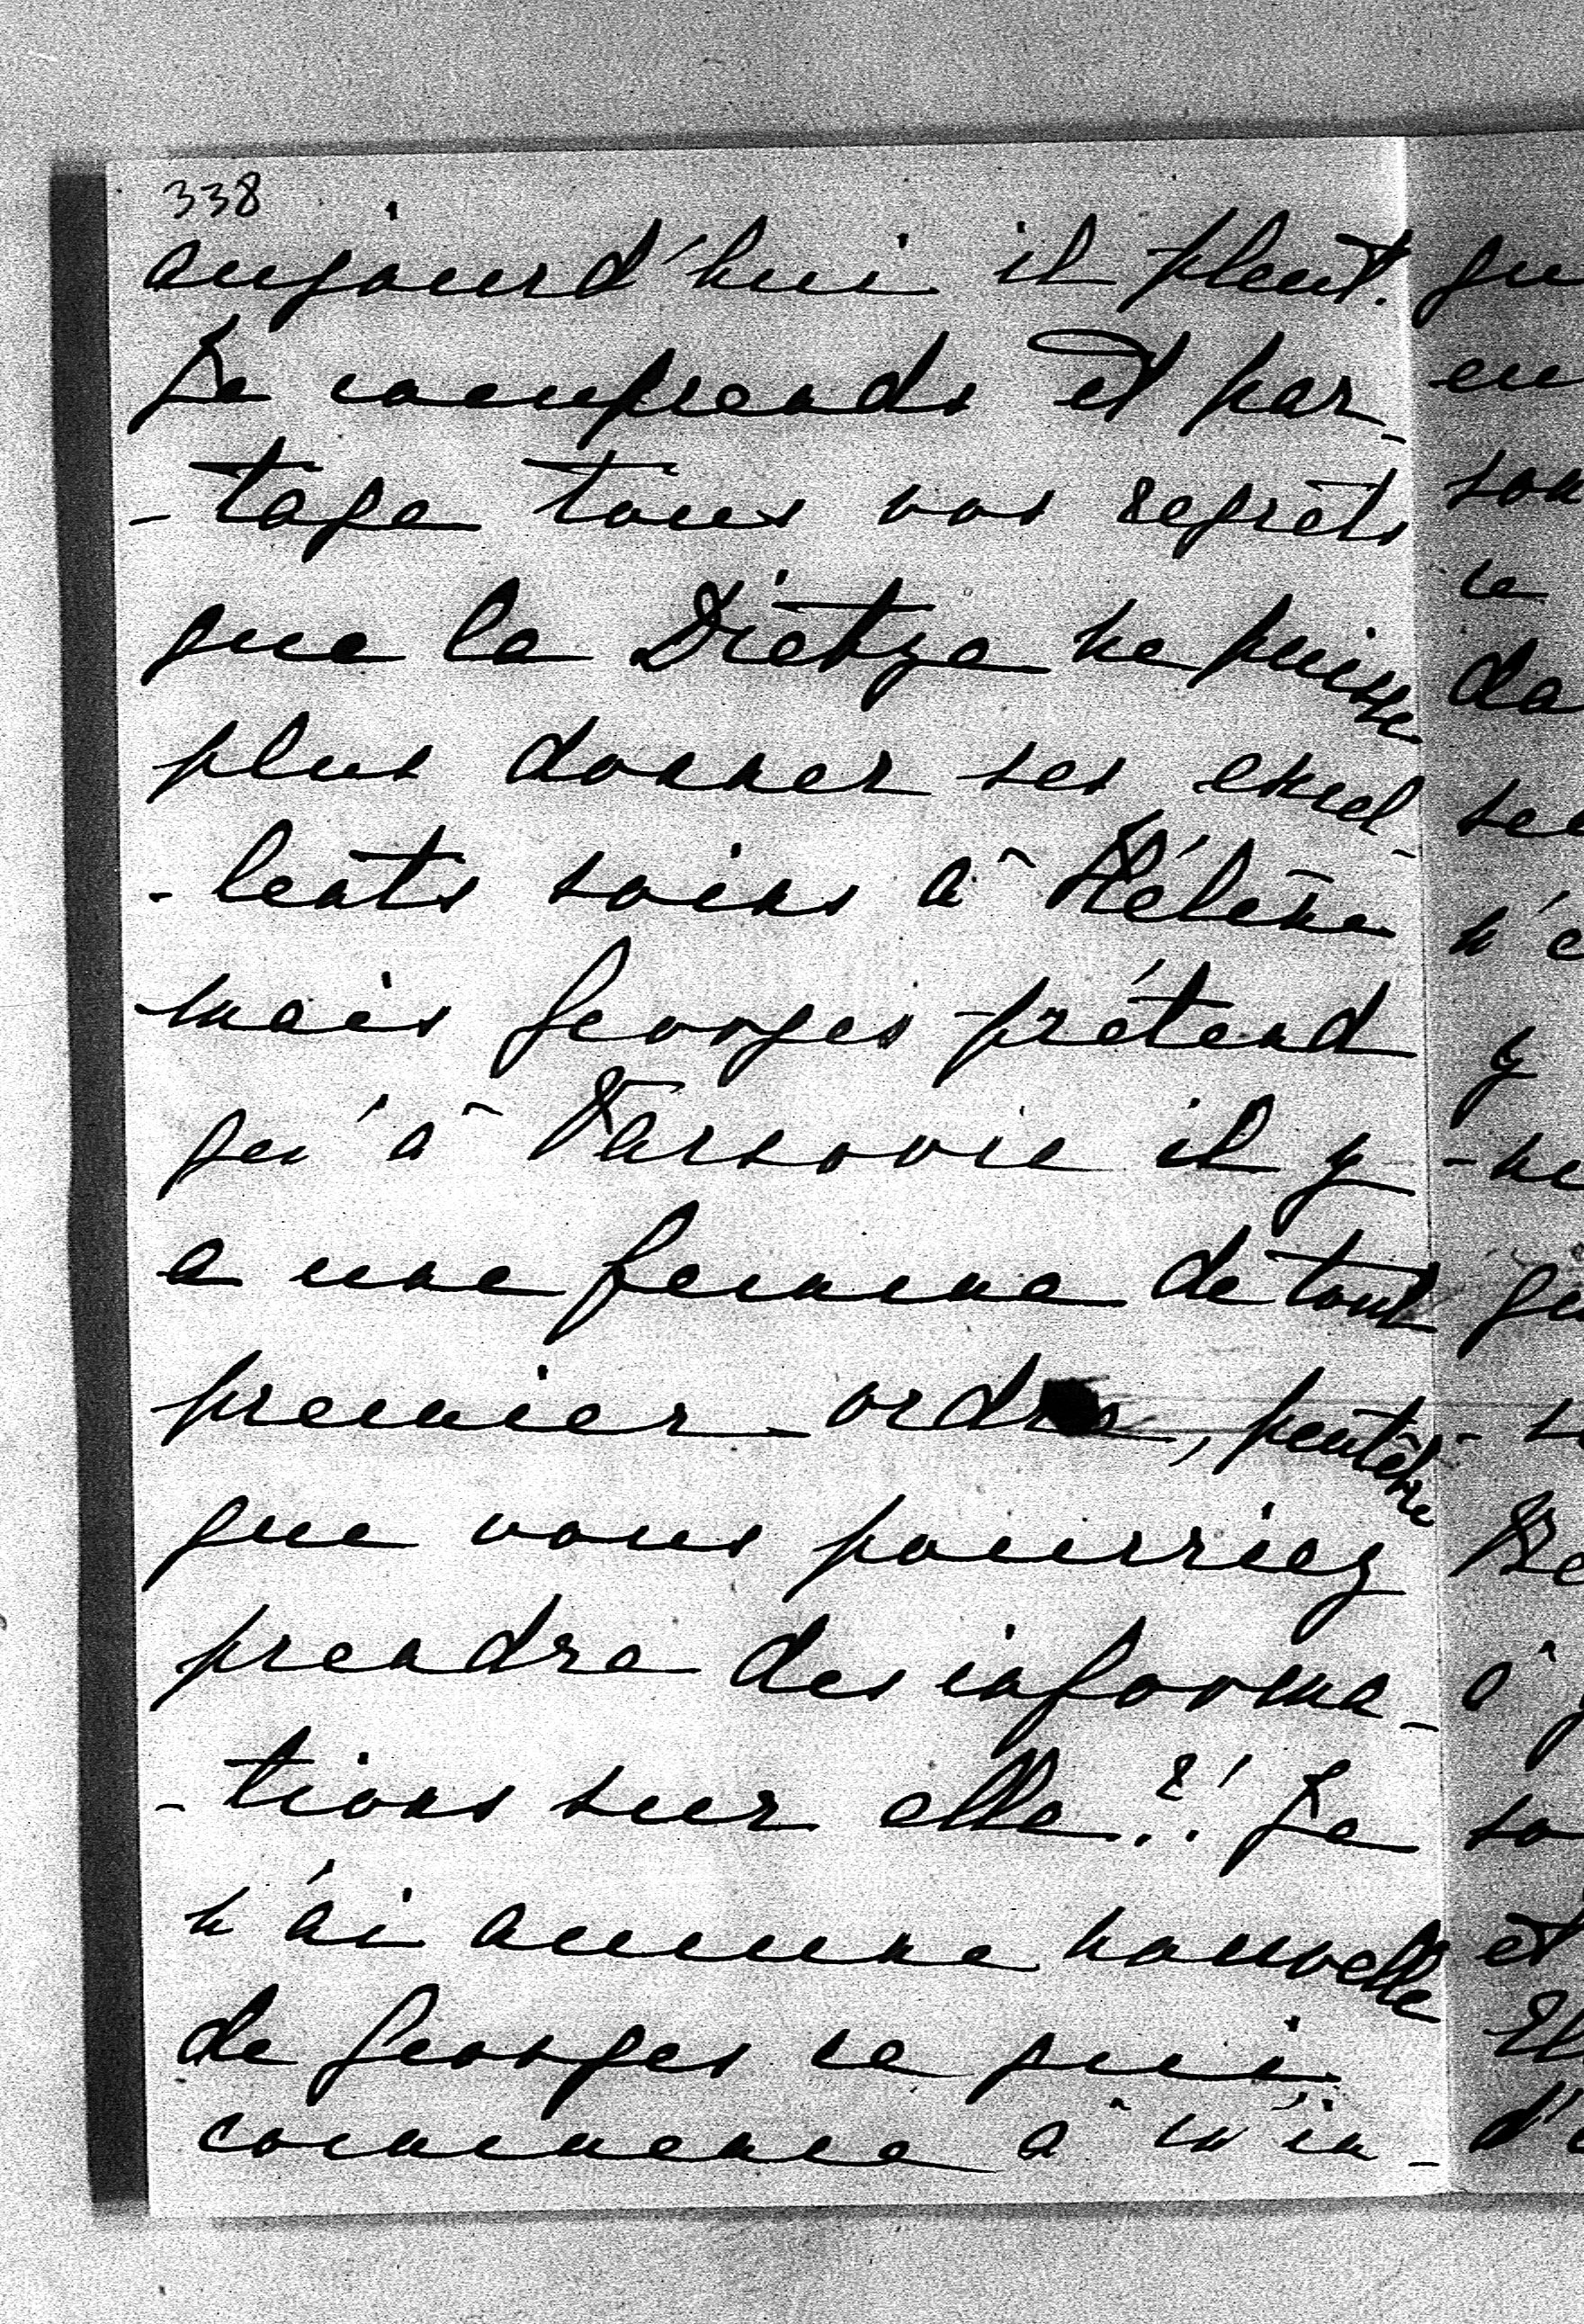 338
aujourd'hui il pleut.
Je comprends et par-
-tage tous vos regrets
que la Diètze ne puisse
plus donner ses excel-
-lents soins à Hélène
mais Georges prétend
qu'à Varsovie il y
a une femme de tout
premier ordre, peutêtre
que vous pourriez
prendre des informa-
-tions sur elle?! Je
n'ai aucune nouvelle
de Georges ce qui
commence à m'in-